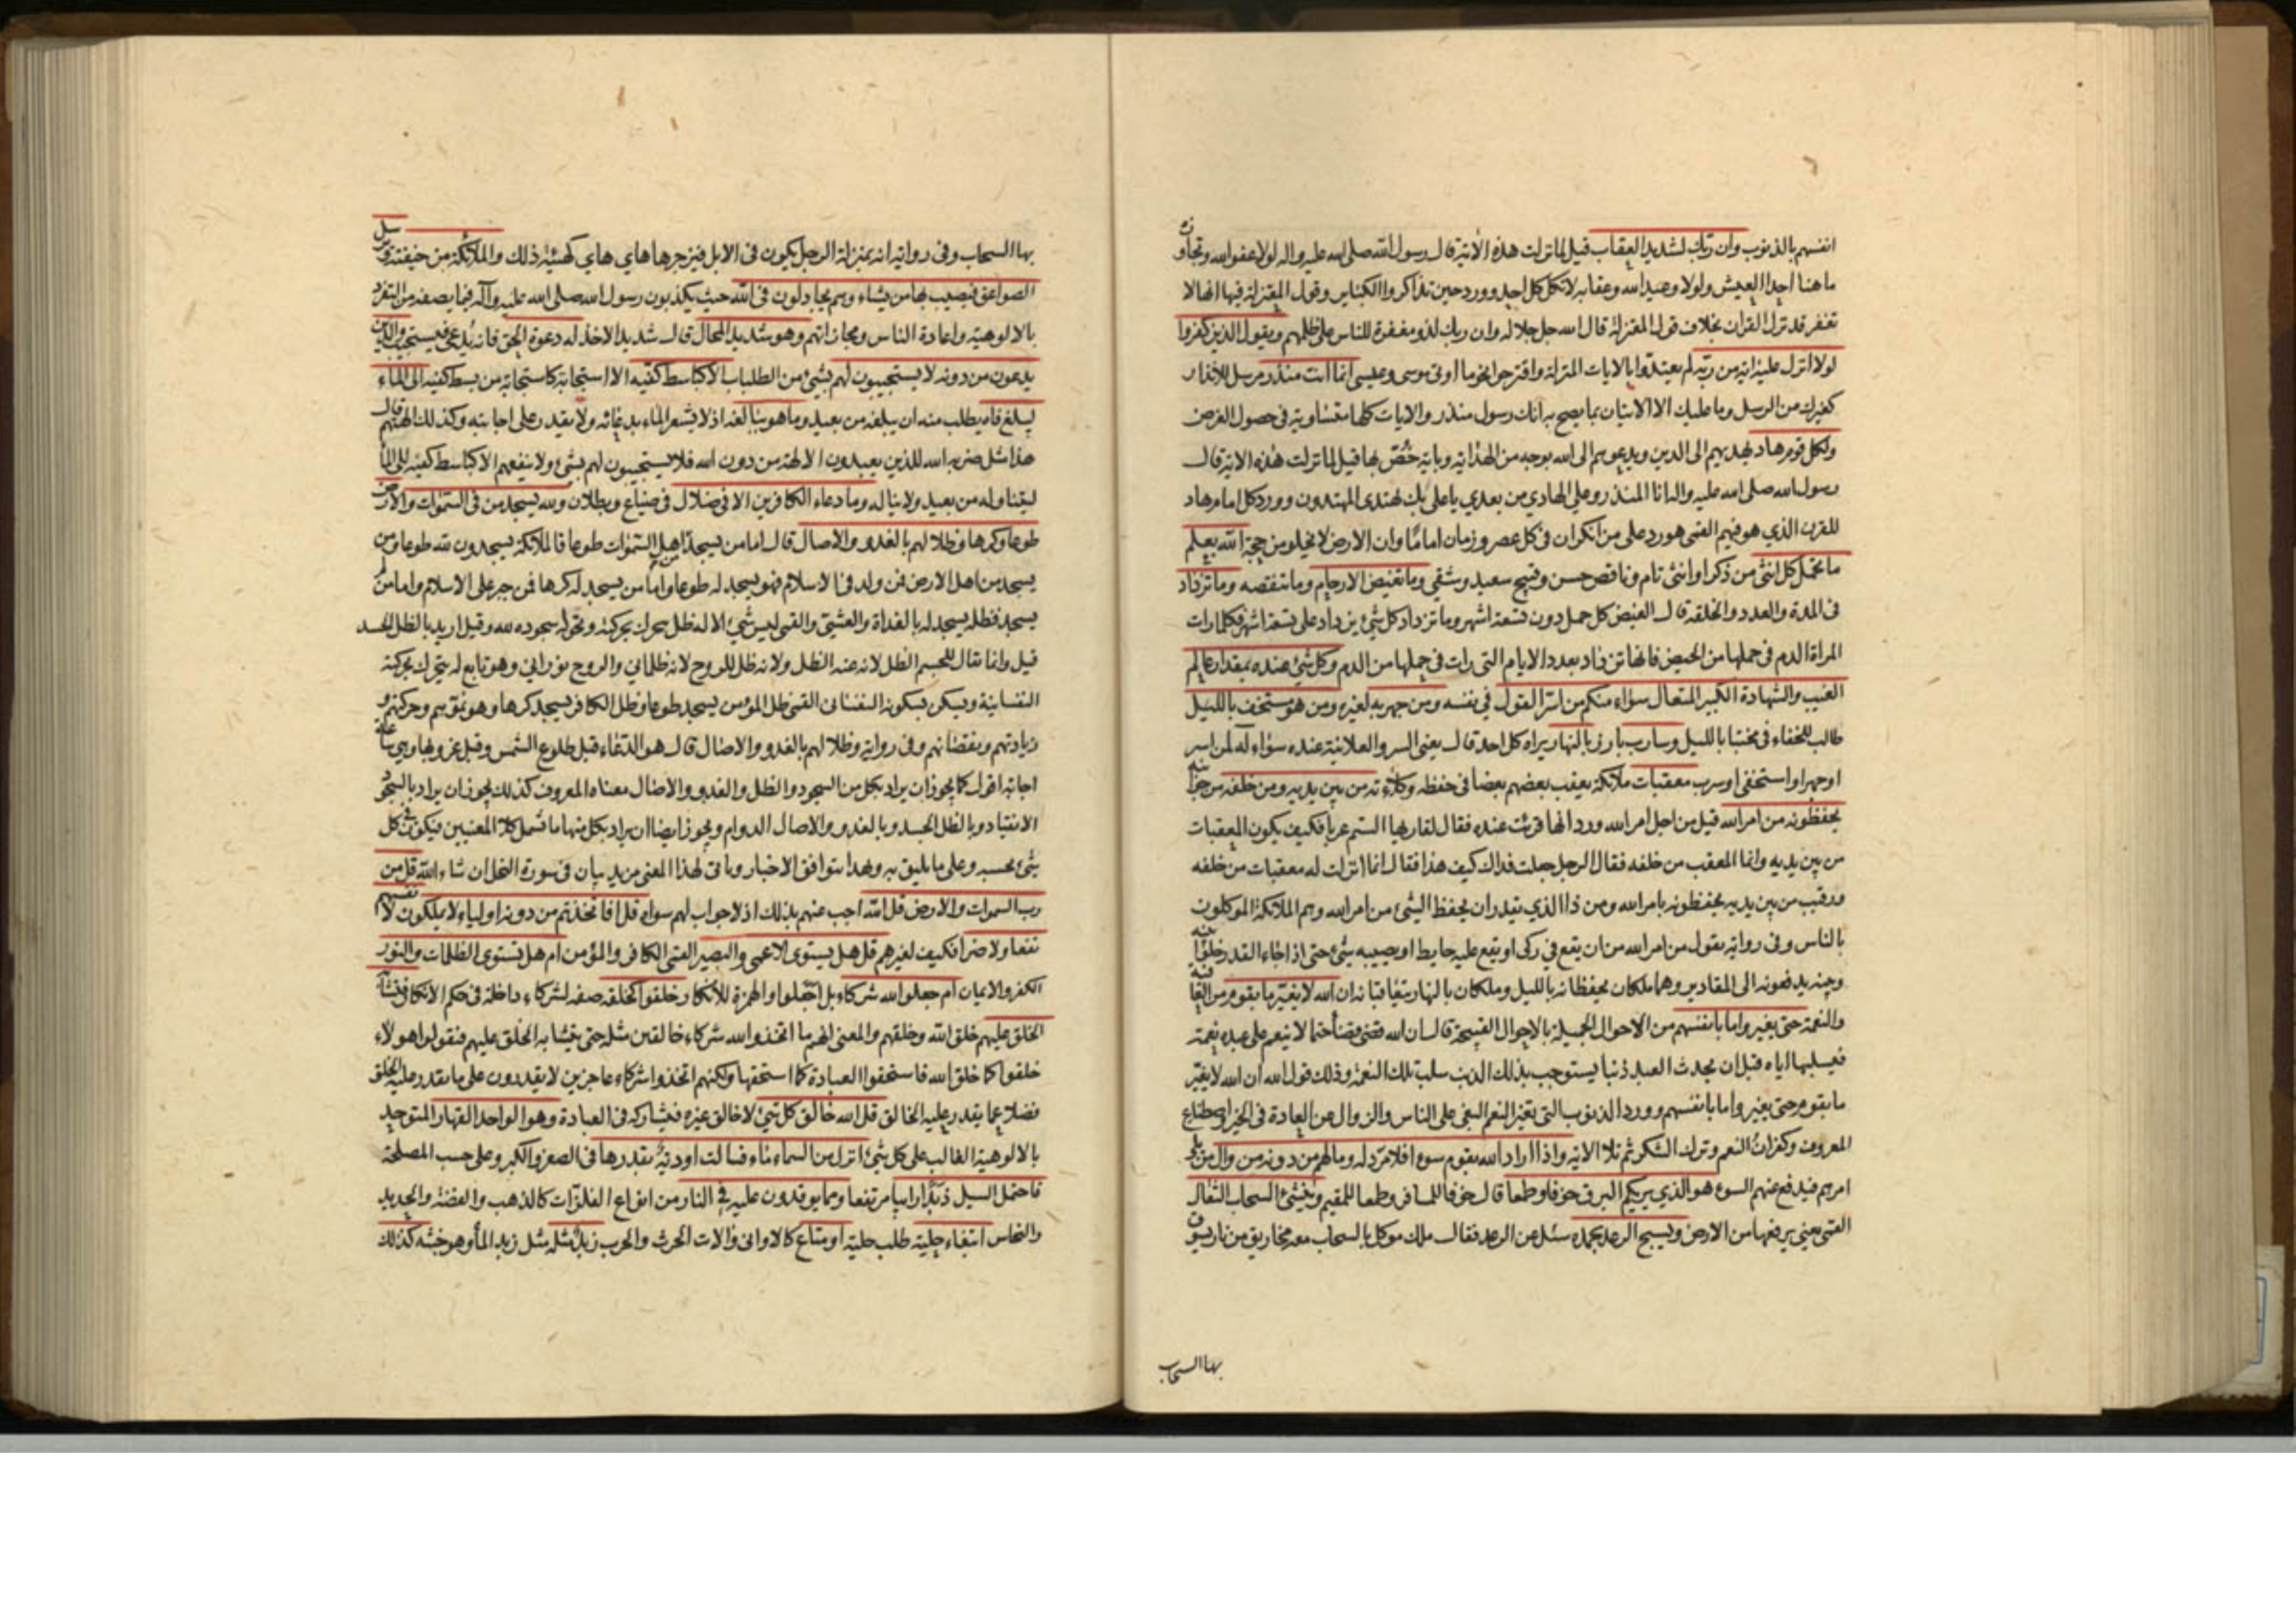 انفسهم بالذنوب وان ربك لشديد العقاب قيل لما نزلت هذه الآية قال رسول الله صلى الله عليه واله لولا عفو الله وتجاوزه
ما هنا احدا العيش ولولا وعيد الله وعقابه لاتكل كل احد وورد حين تذاكروا الكباير وقول المعتزلة فيها انها لا
تغفر قد نزل القران بخلاف قول المعتزلة قال الله جل جلاله وان ربك لذو مغفرة للناس على ظلمهم ويقول الذين كفروا
لولا انزل عليه اية من ربه لم يعتدوا بالايات المنزلة واقترحوا نحو ما اوتى موسى وعيسى انما انت منذر مرسل للانذار
كغيرك من الرسل وما عليك الا الاتيان بما يصح به انك رسول منذر والايات كلها متساوية في حصول الغرض
ولكل قوم هاد يهديهم الى الدين ويدعوهم الى الله بوجه من الهداية وباية خص بها قيل لما نزلت هذه الاية قال
رسول الله صلى الله عليه واله انا المنذر وعلى الهادي من بعدي يا على بك يهتدى المهتدون وورد كل امام هاد
للقرن الذي هو فيهم القمى هو رد على من انكر ان في كل عصر وزمان اماما وان الارض لا يخلو من حجة الله يعلم
ما تحمل كل انثى من ذكر او انثى تام وناقص حسن وقبيح سعيد وشقي وما تغيض الارحام وما تنقصه وما تزداد
في المدة والعدد والخلقة قال الغيض كل حمل دون تسعة اشهر وما تزداد كل شئ يزداد على تسعة اشهر فكلما رات
المراة الدم في حملها من الحيض فانها تزداد بعدد الايام التى رات في حملها من الدم وكل شئ عنده بمقدار عالم
الغيب والشهادة الكبير المتعال سواء منكم من اسر القول في نفسه ومن جهر به لغيره ومن هو مستخف بالليل
طالب للخفاء في مختبا بالليل وسارب بارز بالنهار يراه كل احد قال يعنى السر والعلانية عنده سواء له لمن اسر
او جهر او استخفى او سرب معقبات ملائكة يعقب بعضهم بعضا في حفظه وكلاءته من بين يديه ومن خلفه من جوانبه
يحفظونه من امر الله قيل من اجل امر الله ورد انها قرئت عنده فقال لقاريها الستم عربا فكيف يكون المعقبات
من بين يديه وانما المعقب من خلفه فقال الرجل جعلت فداك كيف هذا فقال انما انزلت له معقبات من خلفه
ورقيب من بين يديه يحفظونه بامر الله ومن ذا الذي يقدر ان يحفظ الشئ من امر الله وهم الملائكة الموكلون
بالناس وفي رواية يقول من امر الله من ان يقع في ركى او يقع عليه حايط او يصيبه شئ حتى اذا جاء القدر خلوا بينه
وبينه يدفعونه الى المقادير وهما ملكان يحفظانه بالليل وملكان بالنهار يتعاقبانه ان الله لا يغير ما بقوم من العافية
والنعمة حتى يغيروا ما بانفسهم من الاحوال الجميلة بالاحوال القبيحة قال ان الله قضى قضاء حتما لا ينعم على عبده بنعمة
فيسلبها اياه قبل ان يحدث العبد ذنبا يستوجب بذلك الذنب سلب تلك النعمة وذلك قول الله ان الله لا يغير
ما بقوم حتى يغيروا ما بانفسهم وورد الذنوب التى تغير النعم البغى على الناس والزوال عن العادة في الخير واصطناع
المعروف وكفران النعم وترك الشكر ثم تلا الاية واذا اراد الله بقوم سوءا فلا مرد له وما لهم من دونه من وال من يلي
امرهم فيدفع عنهم السوء هو الذي يريكم البرق خوفا وطمعا قال خوفا للمسافر وطمعا للمقيم وينشئ السحاب الثقال
القمى يعنى يرفعها من الارض ويسبح الرعد بحمده سئل عن الرعد فقال ملك موكل بالسحاب معه مخاريق من نار يسوق
بها السحاب
بها السحاب وفي رواية انه بمنزلة الرجل يكون في الابل فيزجرها هاي هاي كهيئة ذلك والملائكة من خيفته ويرسل
الصواعق فيصيب بها من يشاء وهم يجادلون في الله حيث يكذبون رسول الله صلى الله عليه وآله فيما يصفه من التفرد
بالالوهية واعادة الناس ومجازاتهم وهو شديد المحال قال شديد الاخذ له دعوة الحق فانه يدعى فيستجيب والذين
يدعون من دونه لا يستجيبون لهم بشئ من الطلبات الا كباسط كفيه الا استجابة كاستجابة من بسط كفيه الى الماء
ليبلغ فاه يطلب منه ان يبلغه من بعيد وما هو ببالغه اذ لا يشعر الماء بدعائه ولا يقدر على اجابته وكذلك الهتهم قال
هذا مثل ضربه الله للذين يعبدون الالهة من دون الله فلا يستجيبون لهم بشئ ولا ينفعهم الا كباسط كفيه الى الماء
ليتناوله من بعيد ولا يناله وما دعاء الكافرين الا في ضلال في ضياع وبطلان ولله يسجد من في السموات والارض
طوعا وكرها وظلالهم بالغدو والاصال قال اما من يسجد من اهل السموات طوعا فالملائكة يسجدون لله طوعا ومن
يسجد من اهل الارض فمن ولد في الاسلام فهو يسجد له طوعا واما من يسجد له كرها فمن جبر على الاسلام واما من لم
يسجد فظله يسجد له بالغداة والعشى والقمى ليس شئ الا له ظل يتحرك بحركته وتحوله سجوده لله وقيل اريد بالظل الجسد
قيل وانما يقال للجسم الظل لانه عنه الظل ولانه ظل للروح لانه ظلماني والروح نوراني وهو تابع له يتحرك بحركته
النفسانية ويسكن بسكونه النفسانى القمى ظل المؤمن يسجد طوعا وظل الكافر يسجد كرها وهو نموهم وحركتهم و
زيادتهم ونقصانهم وفي رواية وظلالهم بالغدو والاصال قال هو الدعاء قبل طلوع الشمس وقبل غروبها وهي ساعة
اجابة اقول كما يجوز ان يراد بكل من السجود والظل والغدو والاصال معناه المعروف كذلك يجوز ان يراد بالسجود
الانقياد وبالظل الجسد وبالغدو والاصال الدوام ويجوز ايضا ان يراد بكل منها ما يشمل كلا المعنيين فيكون في كل
شئ بحسبه وعلى ما يليق به وبهذا يتوافق الاخبار وياتى لهذا المعنى مزيد بيان في سورة النحل ان شاء الله قل من
رب السموات والارض قل الله اجب عنهم بذلك اذ لا جواب لهم سواه قل افاتخذتم من دونه اولياء لا يملكون لانفسهم
نفعا ولا ضرا فكيف لغيرهم قل هل يستوى الاعمى والبصير القمى الكافر والمؤمن ام هل تستوى الظلمات والنور
الكفر والايمان ام جعلوا لله شركاء بل اجعلوا والهمزة للانكار خلقوا كخلقه صفة لشركاء داخلة في حكم الانكار فتشابه
الخلق عليهم خلق الله وخلقهم والمعنى انهم ما اتخذوا لله شركاء خالقين مثله حتى يتشابه الخلق عليهم فيقولوا هولاء
خلقوا كما خلق الله فاستحقوا العبادة كما استحقها ولكنهم اتخذوا شركاء عاجزين لا يقدرون على ما يقدر عليه الخلق
فضلا عما يقدر عليه الخالق قل الله خالق كل شئ لا خالق غيره فيشاركه في العبادة وهو الواحد القهار المتوحد
بالالوهية الغالب على كل شئ انزل من السماء ماء فسالت اودية بقدرها في الصغر والكبر وعلى حسب المصلحة
فاحتمل السيل زبدا رابيا مرتفعا ومما يوقدون عليه في النار من انواع الفلزات كالذهب والفضة والحديد
والنحاس ابتغاء حلية طلب حلية او متاع كالاوانى والات الحرث والحرب زبد مثله مثل زبد الماء وهو خبثه كذلك